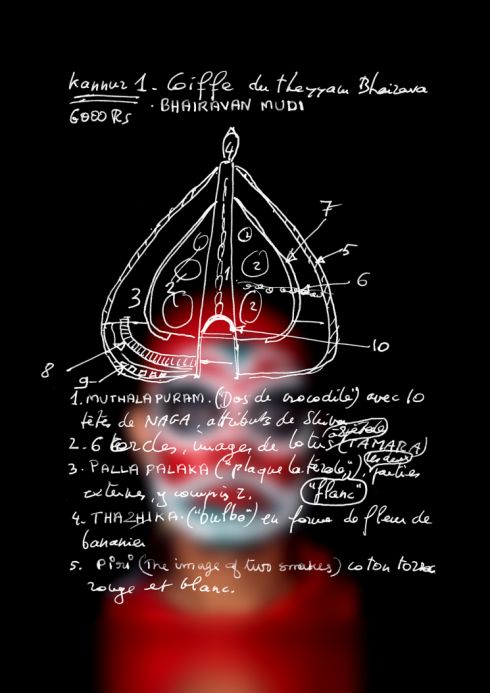 Kannur 1. Coiffe du theyyam Bhairava
6000 Rs . BHAIRAVAN MUDI
4
7
5
2
6
1
2
3
2
2
10
8
9
1. MUTHALAPURAM. ("Dos de crocodile") avec 10
têtes de NAGA, attributs de Shiva
2. 6 cercles, images de lotus (TAMARA)
3. PALLA PALAKA ("plaque latérale"), parties
externes, y compris 2. "flanc"
4. THAZHIKA. ("bulbe") en forme de fleur de
bananier
5. Piri (The image of two snakes) coton
rouge et blanc.